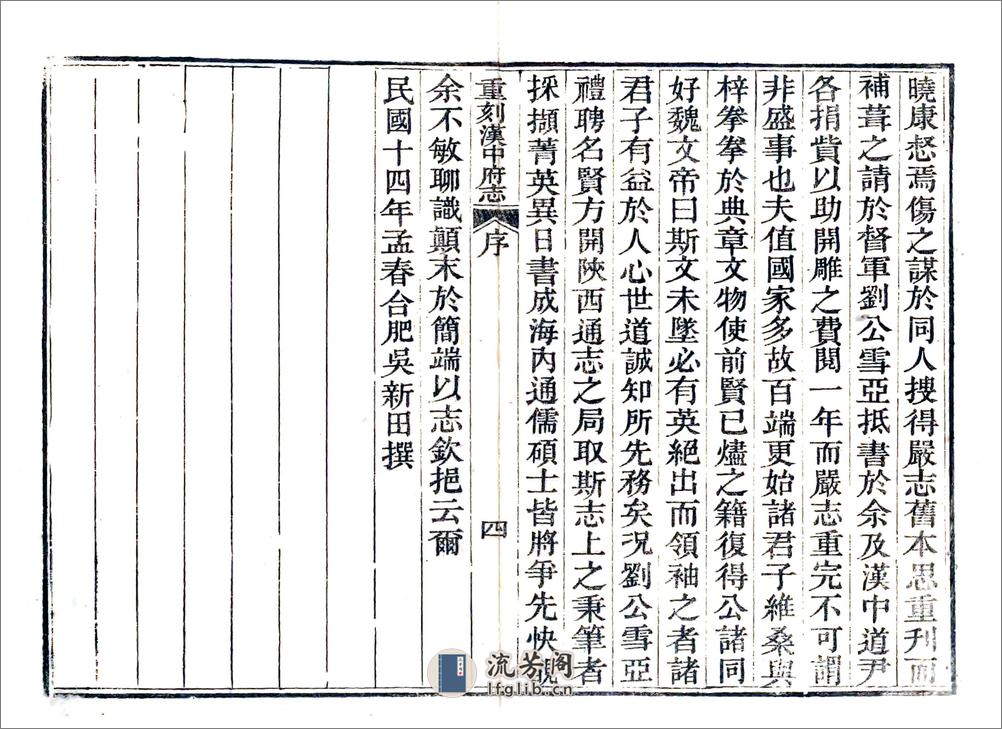 曉康惄焉傷之謀於同人搜得嚴志舊本思重刊而
補葺之請於督軍劉公雪亞抵書於余及漢中道尹
各捐貲以助開雕之費閱一年而嚴志重完不可謂
非盛事也夫值國家多故百端更始諸君子維桑與
梓拳拳於典章文物使前賢已燼之籍復得公諸同
好魏文帝曰斯文未墜必有英絕出而領袖之者諸
君子有益於人心世道誠知所先務矣況劉公雪亞
禮聘名賢方開陝西通志之局取斯志上之秉筆者
採擷菁英異日書成海內通儒碩士皆將爭先快覩
重刻漢中府志 序 四
余不敏聊識顛末於簡端以志欽挹云爾
民國十四年孟春合肥吳新田撰
流芳阁
lfglib.cn